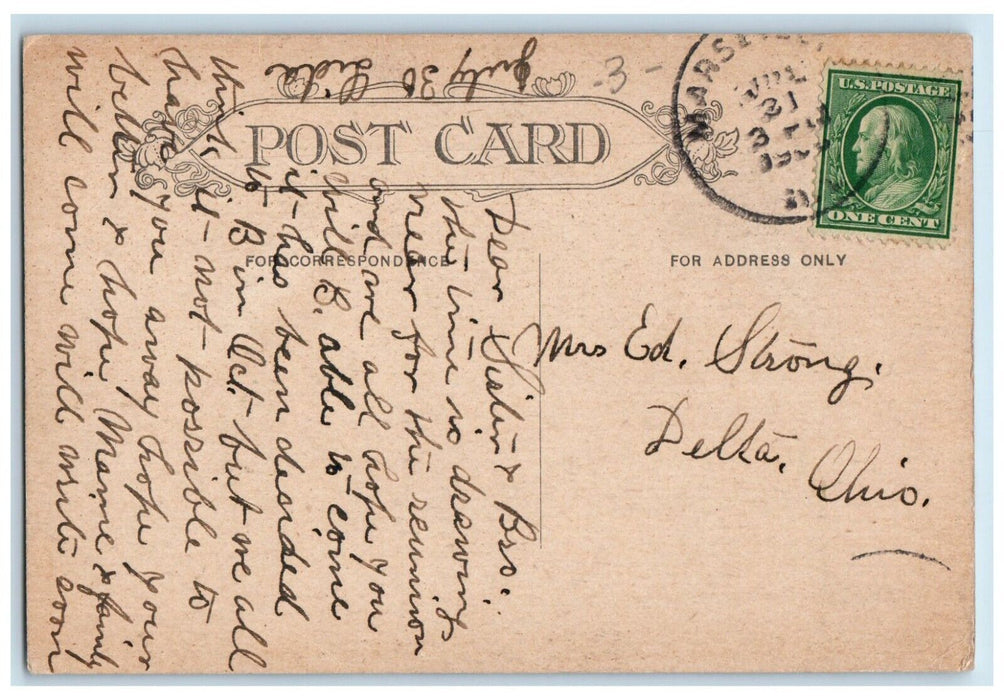 POST CARD
FOR CORRESPONDENCE
FOR ADDRESS ONLY
U.S. POSTAGE
ONE CENT
31
3-
Mrs Ed. Strong.
Delta,
Ohio.
Dear Sister & Bro.
the time is drawing
near for the reunion
and we all hope you
will B. able to come
it has been decided
to B in Oct. but we all
think it not possible to
have you away hope your
better & hope Mame & family
will come will write soon
July 30 Lida